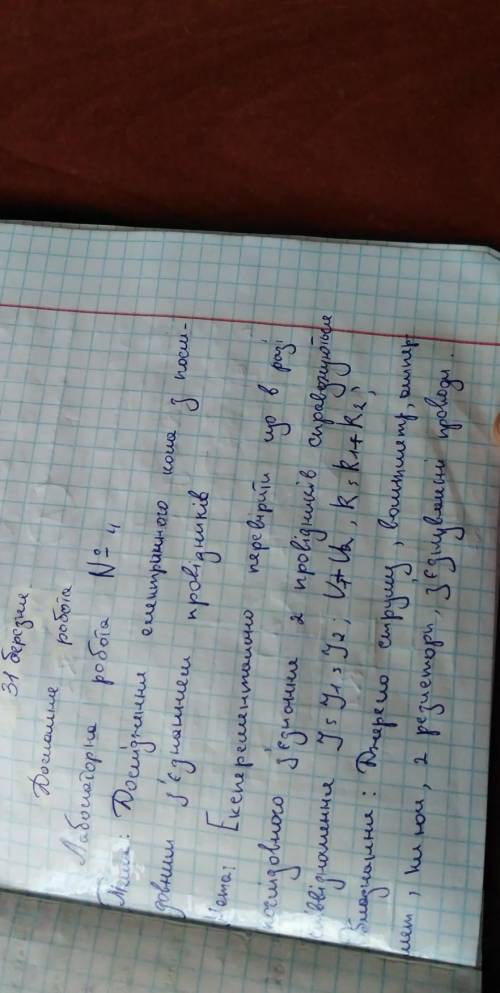 31 березня.
Домашня робота
Лабораторна робота № 4
Тема: Дослідження електричного кола з послі-
довним з'єднанням провідників
Мета: Експерементально перевірити що в разі
послідовного з'єднання 2 провідників справджуються
співвідношення I = I1 = I2; U = U2, R = R1 + R2;
Обладнання: Джерело струму, вольтметр, ампер-
метр, ключ, 2 резистори, з'єднувальні проводи.